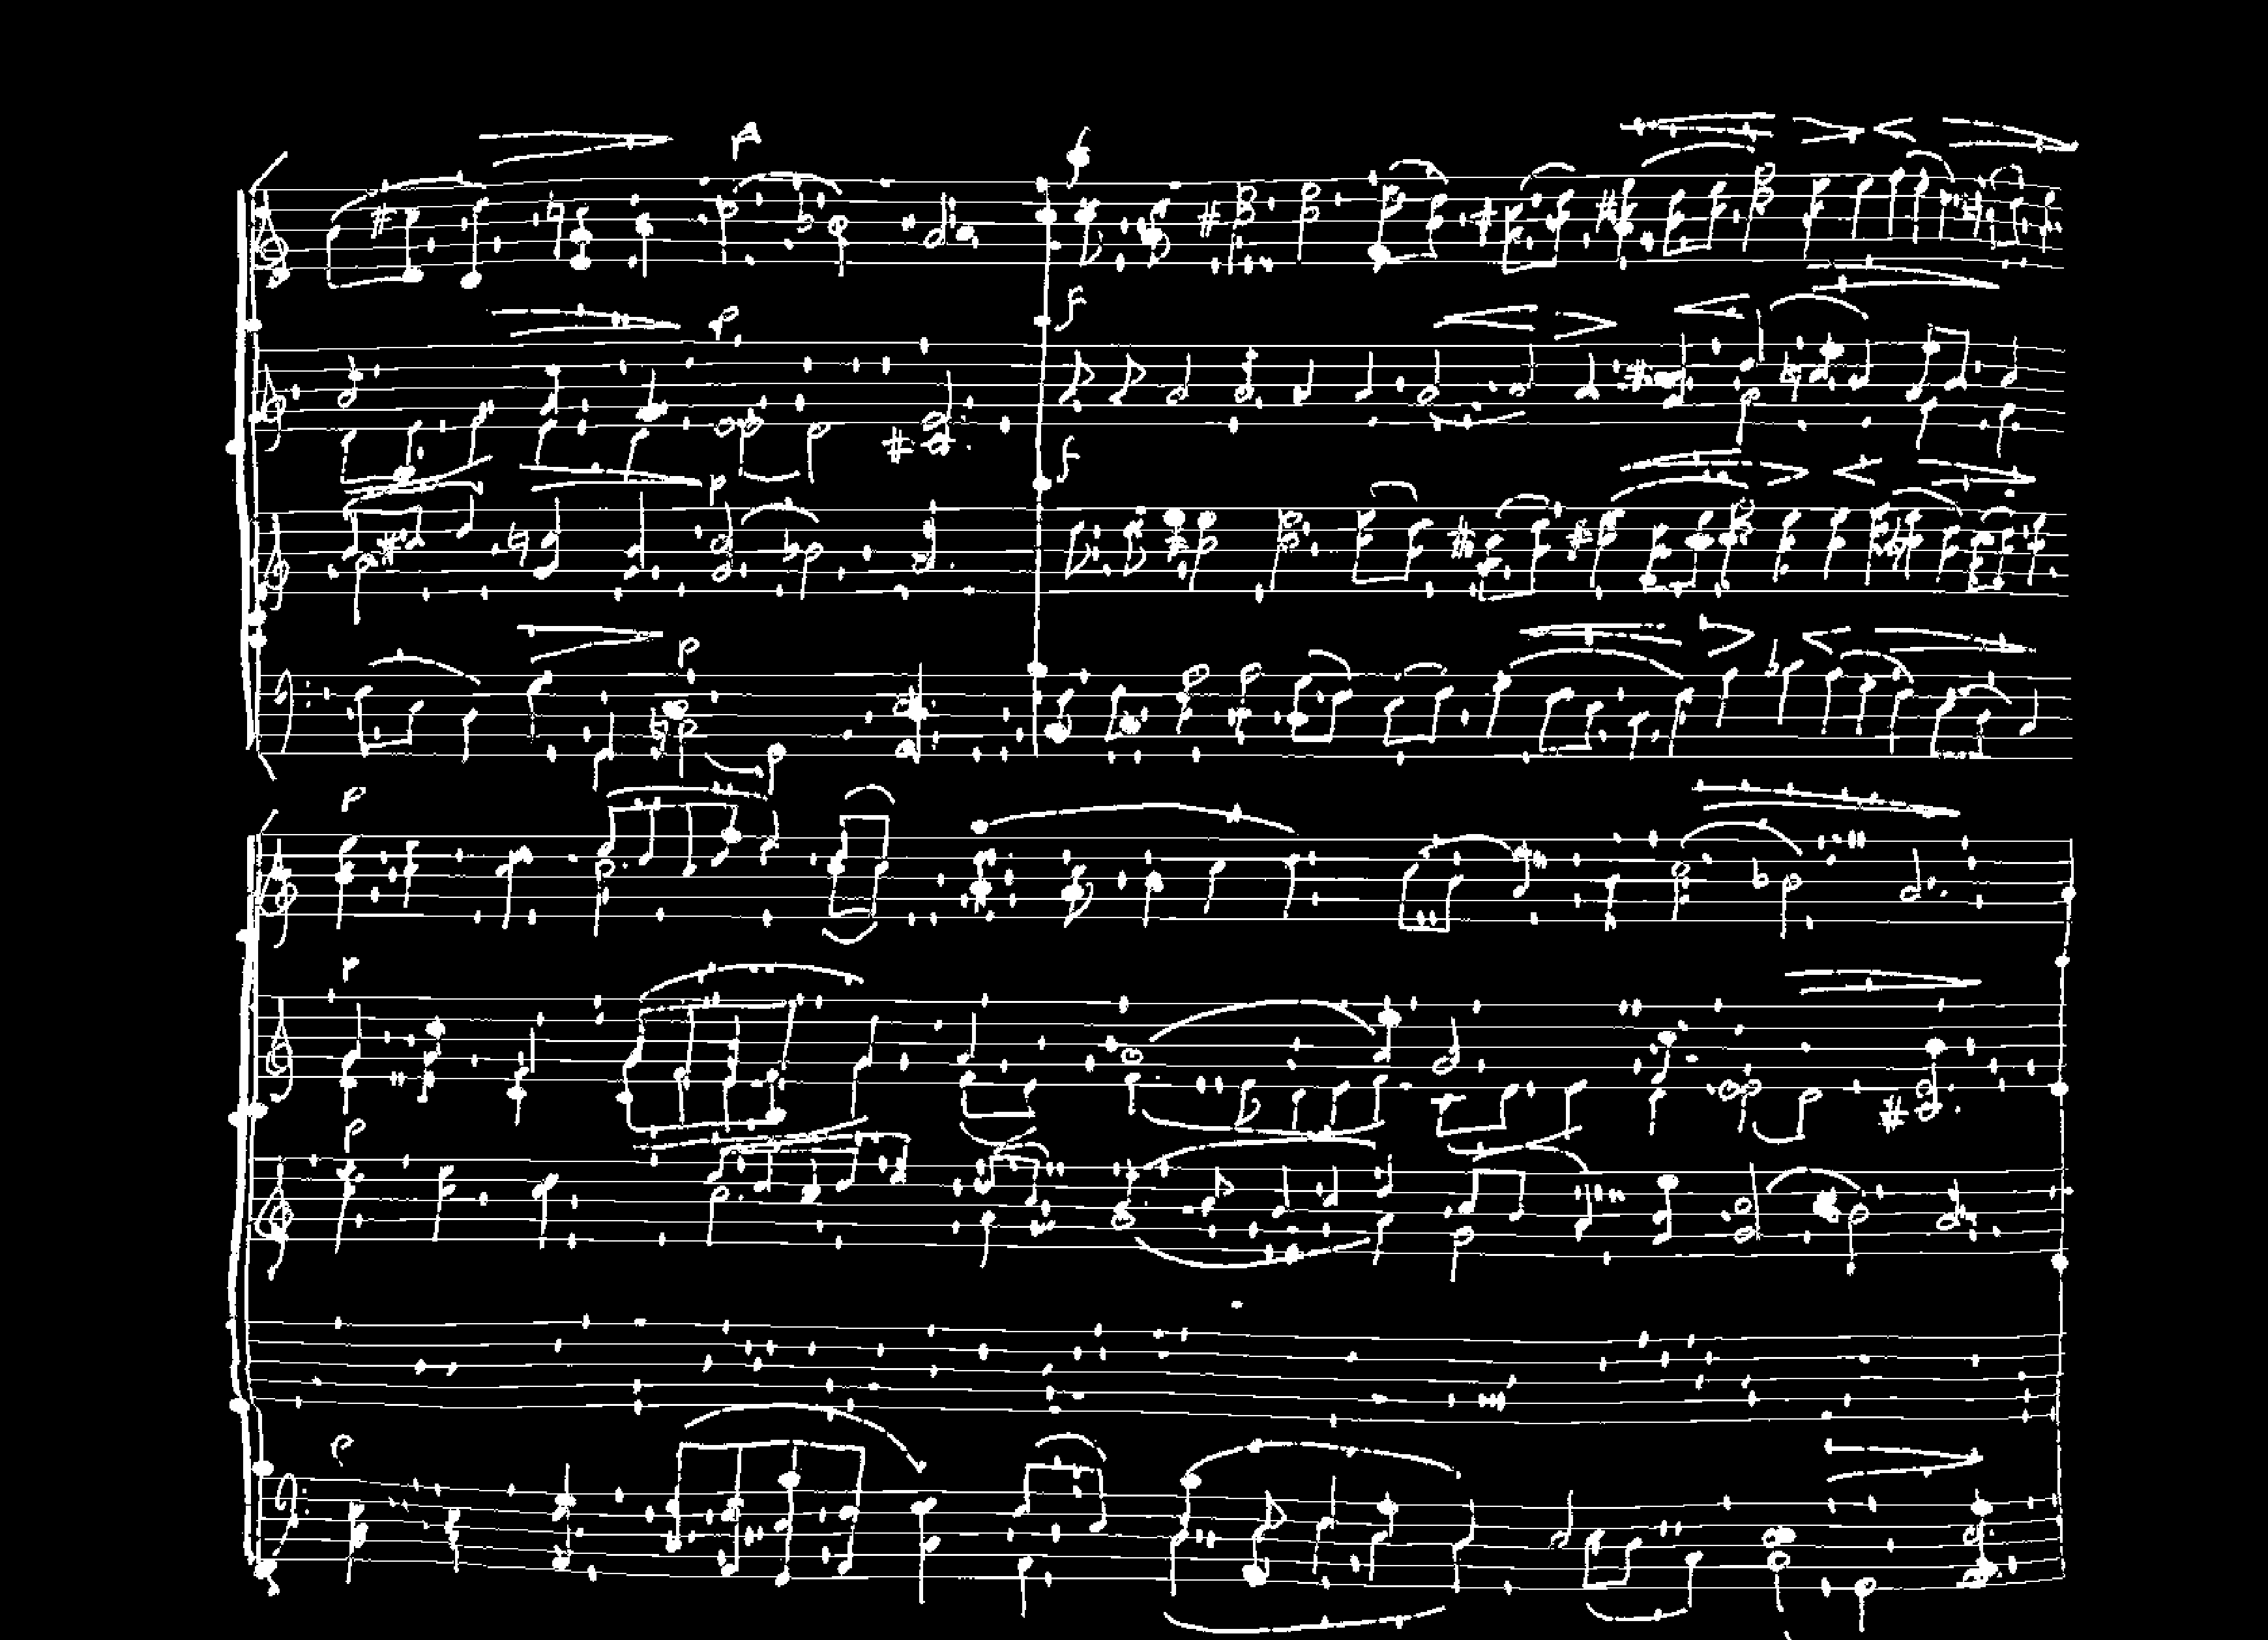 p
f
p
f
p
f
p
p
p
p
p